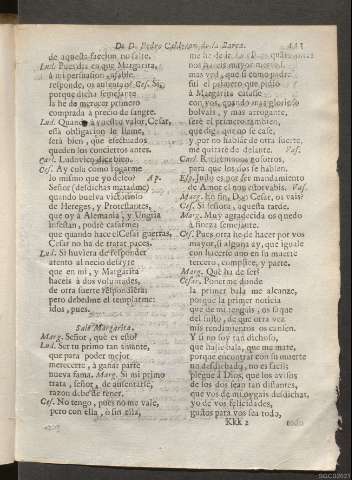 De D. Pedro Calderon de la Barca. 441
de aquesta faccion no falte.
Lud. Pues dad en que Margarita,
à mi persuasion afable
responde, os aumento Ces. Si,
porque dicha semejante
la he de merecer primero
comprada à precio de sangre.
Lud. Quando à vuestro valor, Cesar,
esta obligacion le llame,
serà bien, que efectuados
queden los conciertos antes.
Carl. Ludovico dice bien.
Ces. Ay cielo como rogarme
lo mismo que yo deseo? Ap.
Señor (desdichas matadme)
quando buelva victorioso
de Hereges, y Protestantes,
que oy à Alemania, y Ungria
infestan, podrè casarme;
que quando hace Cesar guerras,
Cesar no ha de tratar paces.
Lud. Si huviera de responder
atento al necio desayre
que en mi, y Margarita
haceis à dos voluntades,
de otra suerte respondiera:
pero debedme el templarme:
idos, pues.
Sale Margarita.
Marg. Señor, què es esto?
Lud. Ser tu primo tan amante,
que para poder mejor
merecerte, à ganar parte
nueva fama. Marg. Si mi primo
trata, señor, de ausentarse,
razon debe de tener.
Ces. No tengo, pues no me vale,
pero con ella, ò sin ella,
me he de ir.
nos
mas ved, que si como padre
fui el primero que pidio
à Margarita casasse
con vos, quando mas glorioso
bolvais, y mas arrogante,
serè el primero tambien,
que diga que no se case,
y por no hablar de otra suerte,
me quitarè de delante. Vas.
Carl. Retiremonos nosotros,
para que los dos se hablen.
Esp. Justo es, por ser mandamiento
de Amor el no estorvarlos. Vas.
Marg. En fin, Don Cesar, os vais?
Ces. Si señora, aquesta tarde.
Marg. Muy agradecida os quedo
à fineza semejante.
Ces. Pues otra he de hacer por vos
mayor, si alguna ay, que iguale
con hacerlo uno en su muerte
tercero, complice, y parte.
Marg. Què ha de ser?
Cesar. Ponerme donde
la primer bala me alcance,
porque la primer noticia
que de mi tengais, os saque
del susto, de que otra vez
mis rendimientos os cansen.
Y si no soy tan dichoso,
que halle bala, que me mate,
porque encontrar con su muerte
un desdichado, no es facil:
plegue à Dios, que los avisos
de los dos sean tan distantes,
que vos de mi oygais desdichas,
yo de vos felicidades,
gustos para vos sea todo,
Kkk 2 todo